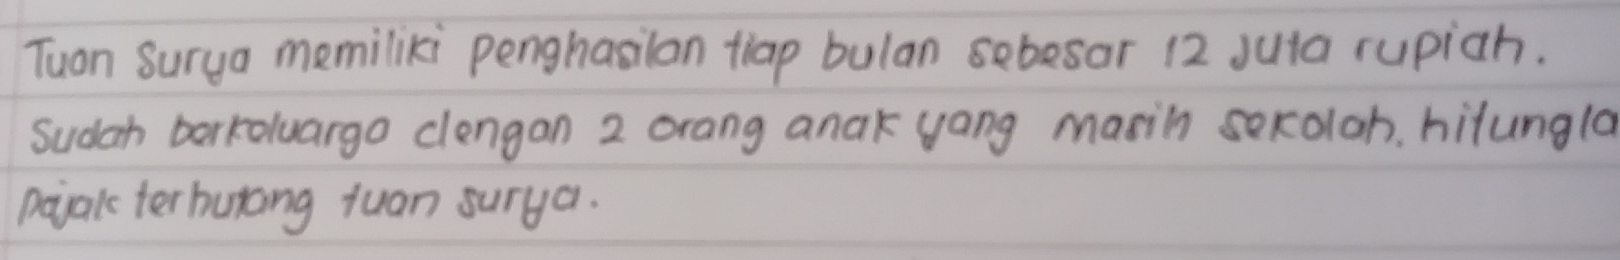 Tuan Surya memiliki penghasilan tiap bulan sebesar 12 juta rupiah.
Sudah berkeluarga dengan 2 orang anak yang masih sekolah. hitungla
Pajak terhutang tuan surya.